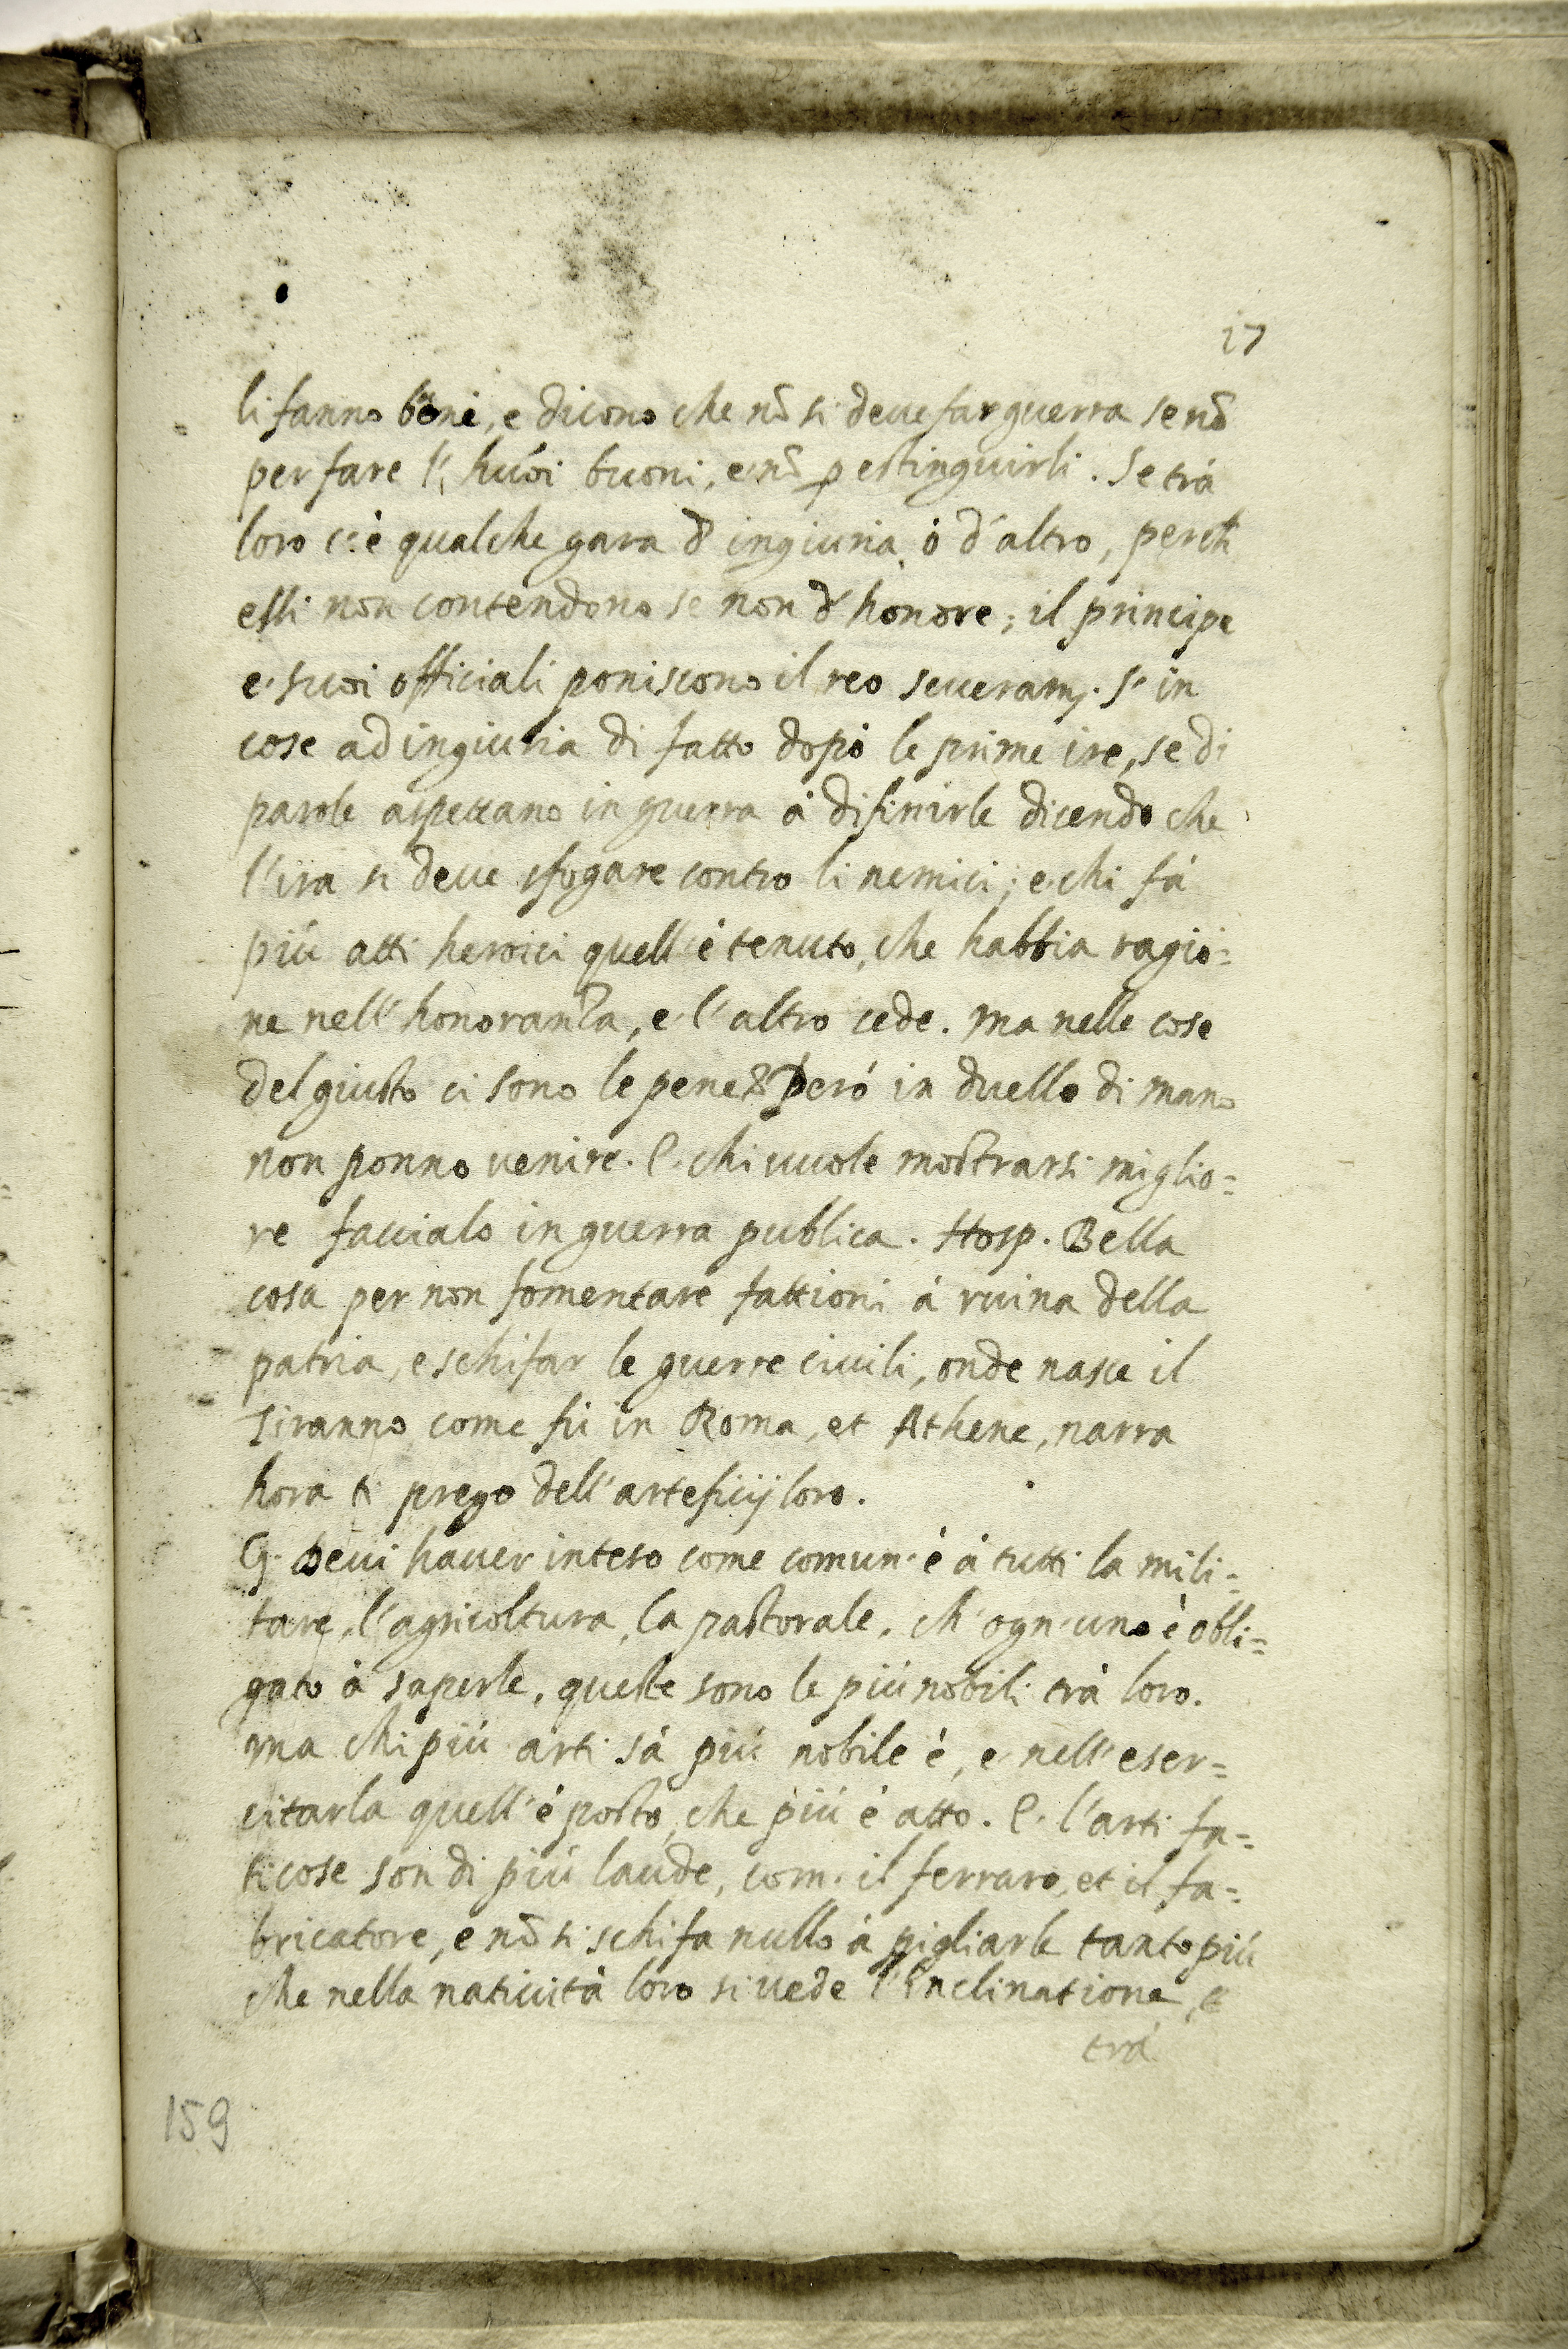 17
li fanno bene, e dicono che nō si deue far guerra se nō
per fare l'huōi buoni, e nō p estinguirli. Se trà
loro c'è qualche gara d' ingiuria ò d'altro, perch
essi non contendono se non d' honore; il principe
e suoi officiali poniscono il reo seueram. s'in
cose ad ingiuria di fatto dopò le prime ire, se di
parole aspettano in guerra à difinirle dicendo che
l'ira si deue sfogare contro li nemici; e chi fà
più atti heroici quell'è tenuto, che habbia ragio=
ne nell'honoranza, e l'altro cede. ma nelle cose
del giusto ci sono le pene però in duello di mano
non ponno uenire. E chi uuole mostrarsi miglio=
re faccialo in guerra publica. Hosp. Bella
cosa per non fomentare fattioni à ruina della
patria, e schifar le guerre ciuili, onde nasce il
tiranno, come fù in Roma, et Athene, narra
hora ti prego dell'arteficij loro.
G. Deui hauer inteso come comun'è à tutti la mili=
tare, l'agricoltura, la pastorale, ch'ogn'uno è obli=
gato à saperle, queste sono le più nobili trà loro.
ma chi più arti sà più nobile è, e nell'eser=
citarla quell'è posto, che più è atto. E l'arti fa=
ticose son di più laude, com'il ferraro, et il fa=
bricatore, e nō si schifa nullo à pigliarle tanto più
che nella natiuità loro si uede l'inclinatione, e
trà
159